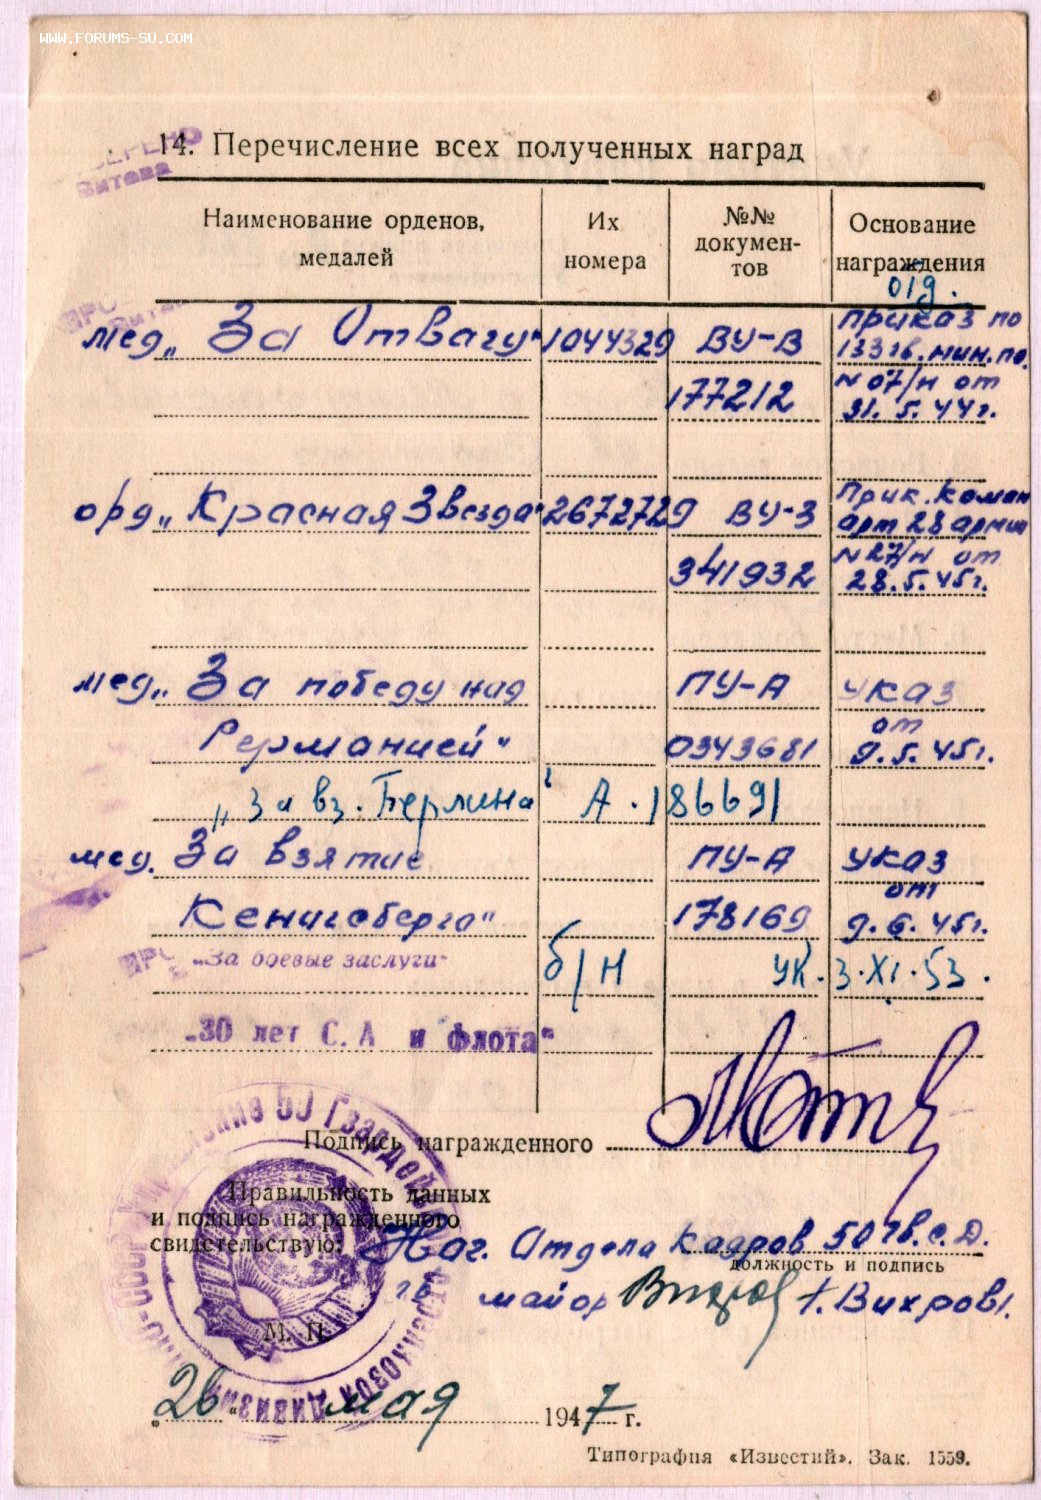 WWW.FORUMS-SU.COM
14. Перечисление всех полученных наград
Наименование орденов, медалей
Их номера
№№ докумен-тов
Основание награждения
отд.
мед. „За Отвагу“ 1044329 ВУ-В приказ по
133 гв. мин. по.
177212 N 07/н от
31. 5. 44 г.
орд. „Красная Звезда“ 2672729 ВУ-З Прик. Коман
арт 28 армии
341932 N 27/н от
28. 5. 45 г.
мед. „За победу над ПУ-А указ
от
Германией“ 0343681 9. 5. 45 г.
„За вз. Берлина“ А. 186691
мед. За взятие ПУ-А указ
от
Кенигсберга“ 178169 9. 6. 45 г.
„За боевые заслуги“ б/н УК. 3. XI. 53.
„30 лет С. А и флота“
Подпись награжденного
Правильность данных
и подпись награжденного
свидетельствую: Нач. Отдела Кадров 50 гв. с. Д.
должность и подпись
гв. майор /. Вихров/.
М. П.
„26“ мая 1947 г.
Типография «Известий». Зак. 1559.